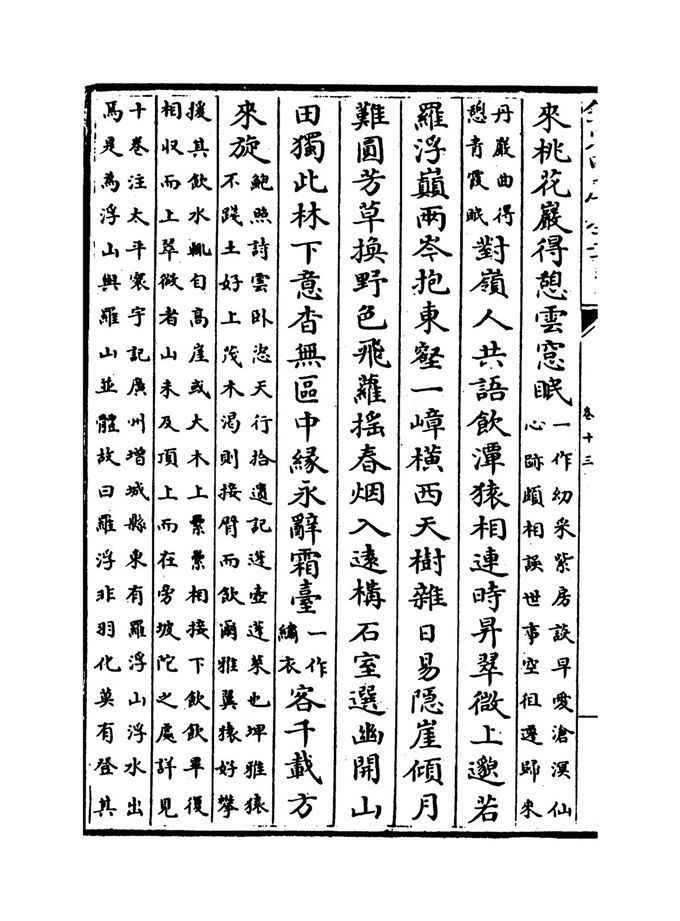 來桃花巖得憩雲窓眠一作幼采紫房談早愛滄溟仙
心跡頗相誤世事空徂遷歸來
丹巖曲得
憩青霞眠對嶺人共語飲潭猿相連時昇翠微上邈若
羅浮巔兩岑抱東壑一嶂橫西天樹雜日易隱崖傾月
難圓芳草換野色飛蘿搖春烟入逺構石室選幽開山
田獨此林下意杳無區中縁永辭霜臺一作
繡衣客千載方
來旋鮑照詩雲卧恣天行拾遺記蓬壺蓬萊也埤雅猿
不踐土好上茂木渴則接臂而飲爾雅翼猿好攀
援其飲水輒自高崖或大木上纍纍相接下飲飲畢復
相収而上翠微者山未及頂上而在旁坡陀之處詳見
十卷注太平寰宇記廣州增城縣東有羅浮山浮水出
焉是為浮山與羅山並體故曰羅浮非羽化莫有登其
卷十三